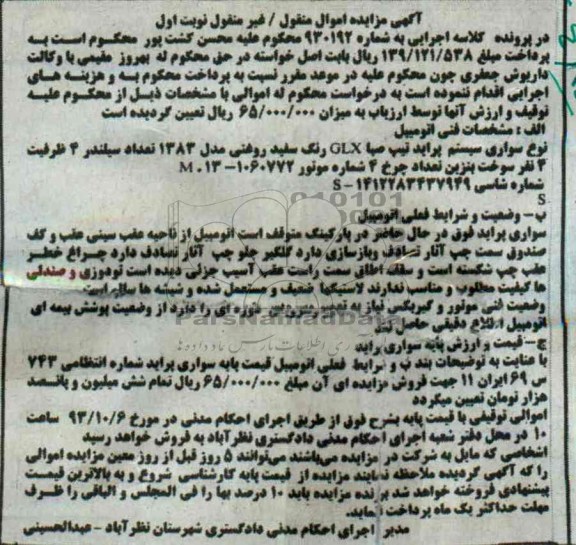 آگهی مزایده اموال منقول / غیر منقول نوبت اول
در پرونده کلاسه اجرایی به شماره ۹۳۰۱۹۲ محکوم علیه محسن کشت پور محکوم است به
پرداخت مبلغ ۱۳۹/۱۲۱/۵۳۸ ریال بابت اصل خواسته در حق محکوم له بهروز مقیمی با وکالت
داریوش جعفری چون محکوم علیه در موعد مقرر نسبت به پرداخت محکوم به و هزینه های
اجرایی اقدام ننموده است به درخواست محکوم له اموالی با مشخصات ذیل از محکوم علیه
توقیف و ارزش آنها توسط ارزیاب به میزان ۶۵/۰۰۰/۰۰۰ ریال تعیین گردیده است
الف : مشخصات فنی اتومبیل
نوع سواری سیستم پراید تیپ صبا GLX رنگ سفید روغنی مدل ۱۳۸۳ تعداد سیلندر ۴ ظرفیت
۳ نفر سوخت بنزین تعداد چرخ ۴ شماره موتور ۱۰۶۰۷۷۲- M۰۱۳
شماره شاسی S-۱۴۱۲۲۸۳۴۳۷۹۴۹
S
ب- وضعیت و شرایط فعلی اتومبیل
سواری پراید فوق در حال حاضر در پارکینگ متوقف است اتومبیل از ناحیه عقب سینی عقب و کف
صندوق سمت چپ آثار تصادف وبازسازی دارد گلگیر جلو چپ آثار تصادف دارد چراغ خطر
عقب چپ شکسته است و سقف اطاق سمت راست عقب آسیب جزئی دیده است تودوزی و صندلی
ها کیفیت مطلوب و مناسب ندارند لاستیکها ضعیف و مستعمل شده و شیشه ها سالم است
وضعیت فنی موتور و گیربکس نیاز به تعمیر وسرویس دوره ای را دارد از وضعیت پوشش بیمه ای
اتومبیل اطلاع دقیقی حاصل نشد
ج- قیمت و ارزش پایه سواری پراید
با عنایت به توضیحات بند ب و شرایط فعلی اتومبیل قیمت پایه سواری پراید شماره انتظامی ۷۴۳
س ۶۹ ایران ۱۱ جهت فروش مزایده ای آن مبلغ ۶۵/۰۰۰/۰۰۰ ریال تمام شش میلیون و پانصد
هزار تومان تعیین میگردد
اموالی توقیفی با قیمت پایه بشرح فوق از طریق اجرای احکام مدنی در مورخ ۹۳/۱۰/۶ ساعت
۱۰ در محل دفتر شعبه اجرای احکام مدنی دادگستری نظرآباد به فروش خواهد رسید
اشخاصی که مایل به شرکت در مزایده میباشند می‌توانند ۵ روز قبل از روز معین مزایده اموالی
را که آگهی گردیده ملاحظه نمایند مزایده از قیمت پایه کارشناسی شروع و به بالاترین قیمت
پیشنهادی فروخته خواهد شد برنده مزایده باید ۱۰ درصد بها را فی المجلس و الباقی را ظرف
مهلت حداکثر یک ماه پرداخت نماید.
مدیر اجرای احکام مدنی دادگستری شهرستان نظرآباد - عبدالحسینی
ParsNamadData